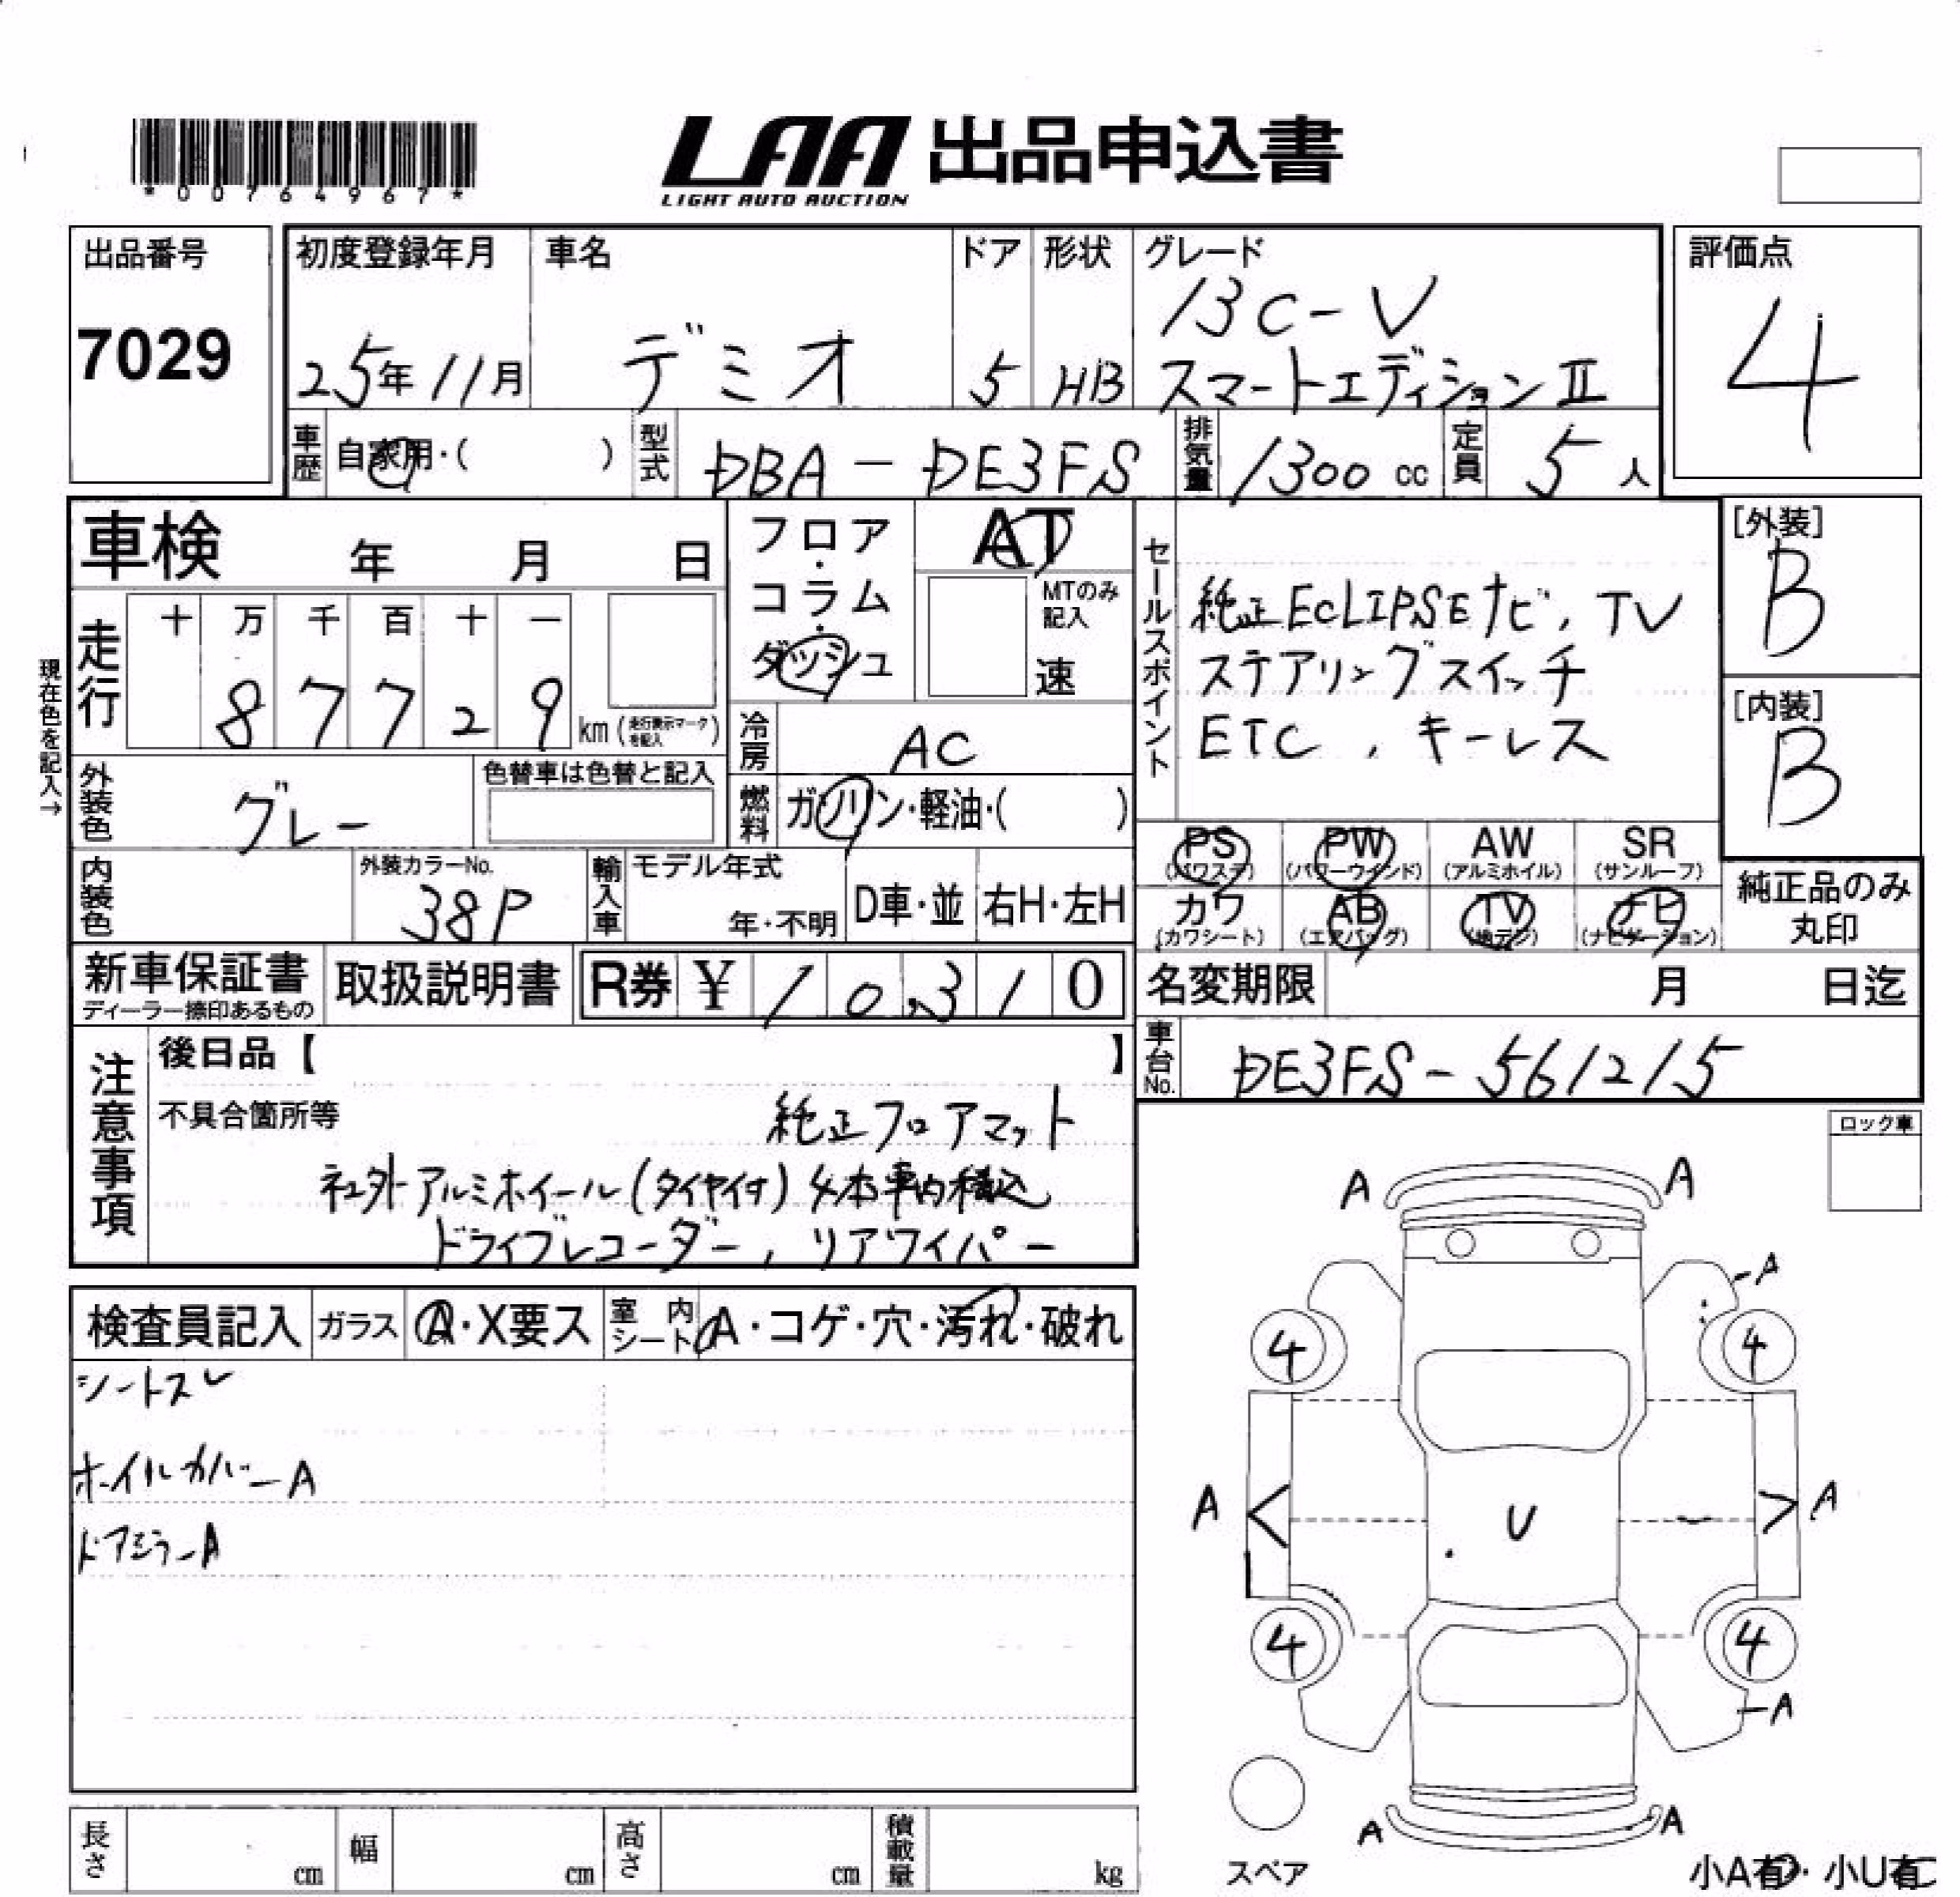 *00764967*
LAA 出品申込書
LIGHT AUTO AUCTION
出品番号
7029
初度登録年月
25年11月
車名
デミオ
ドア
5
形状
HB
グレード
13C-V
スマートエディションⅡ
評価点
4
車歴 自家用・( )
型式 DBA-DE3FS
排気量 1300cc
定員 5人
車検 年 月 日
走行
十 万 千 百 十 一
8 7 7 2 9 km (走行表示マークを記入)
現在色を記入→
フロア・コラム・ダッシュ
AT
MTのみ記入
速
冷房 AC
燃料 ガソリン・軽油・( )
セールスポイント
純正ECLIPSEナビ, TV
ステアリングスイッチ
ETC, キーレス
[外装]
B
[内装]
B
外装色 グレー
色替車は色替と記入
内装色
外装カラーNo.
38P
輸入車
モデル年式
年・不明
D車・並
右H・左H
PS (パワステ)
PW (パワーウインド)
AW (アルミホイル)
SR (サンルーフ)
カワ (カワシート)
AB (エアバッグ)
TV (地デジ)
ナビ (ナビゲーション)
純正品のみ
丸印
新車保証書
ディーラー捺印あるもの
取扱説明書
R券 ¥10,310
名変期限 月 日迄
車台No. DE3FS-561215
注意事項
後日品【 】
不具合箇所等
純正フロアマット
社外アルミホイール(タイヤ付)4本車内積込
ドライブレコーダー, リアワイパー
ロック車
検査員記入
ガラス A・X要ス
室内シート A・コゲ・穴・汚れ・破れ
シートスレ
ホイルカバーA
ドアミラーA
A A
A
4 4
A U A
4 4
A
A A
スペア
小A有・小U有
長さ cm
幅 cm
高さ cm
積載量 kg